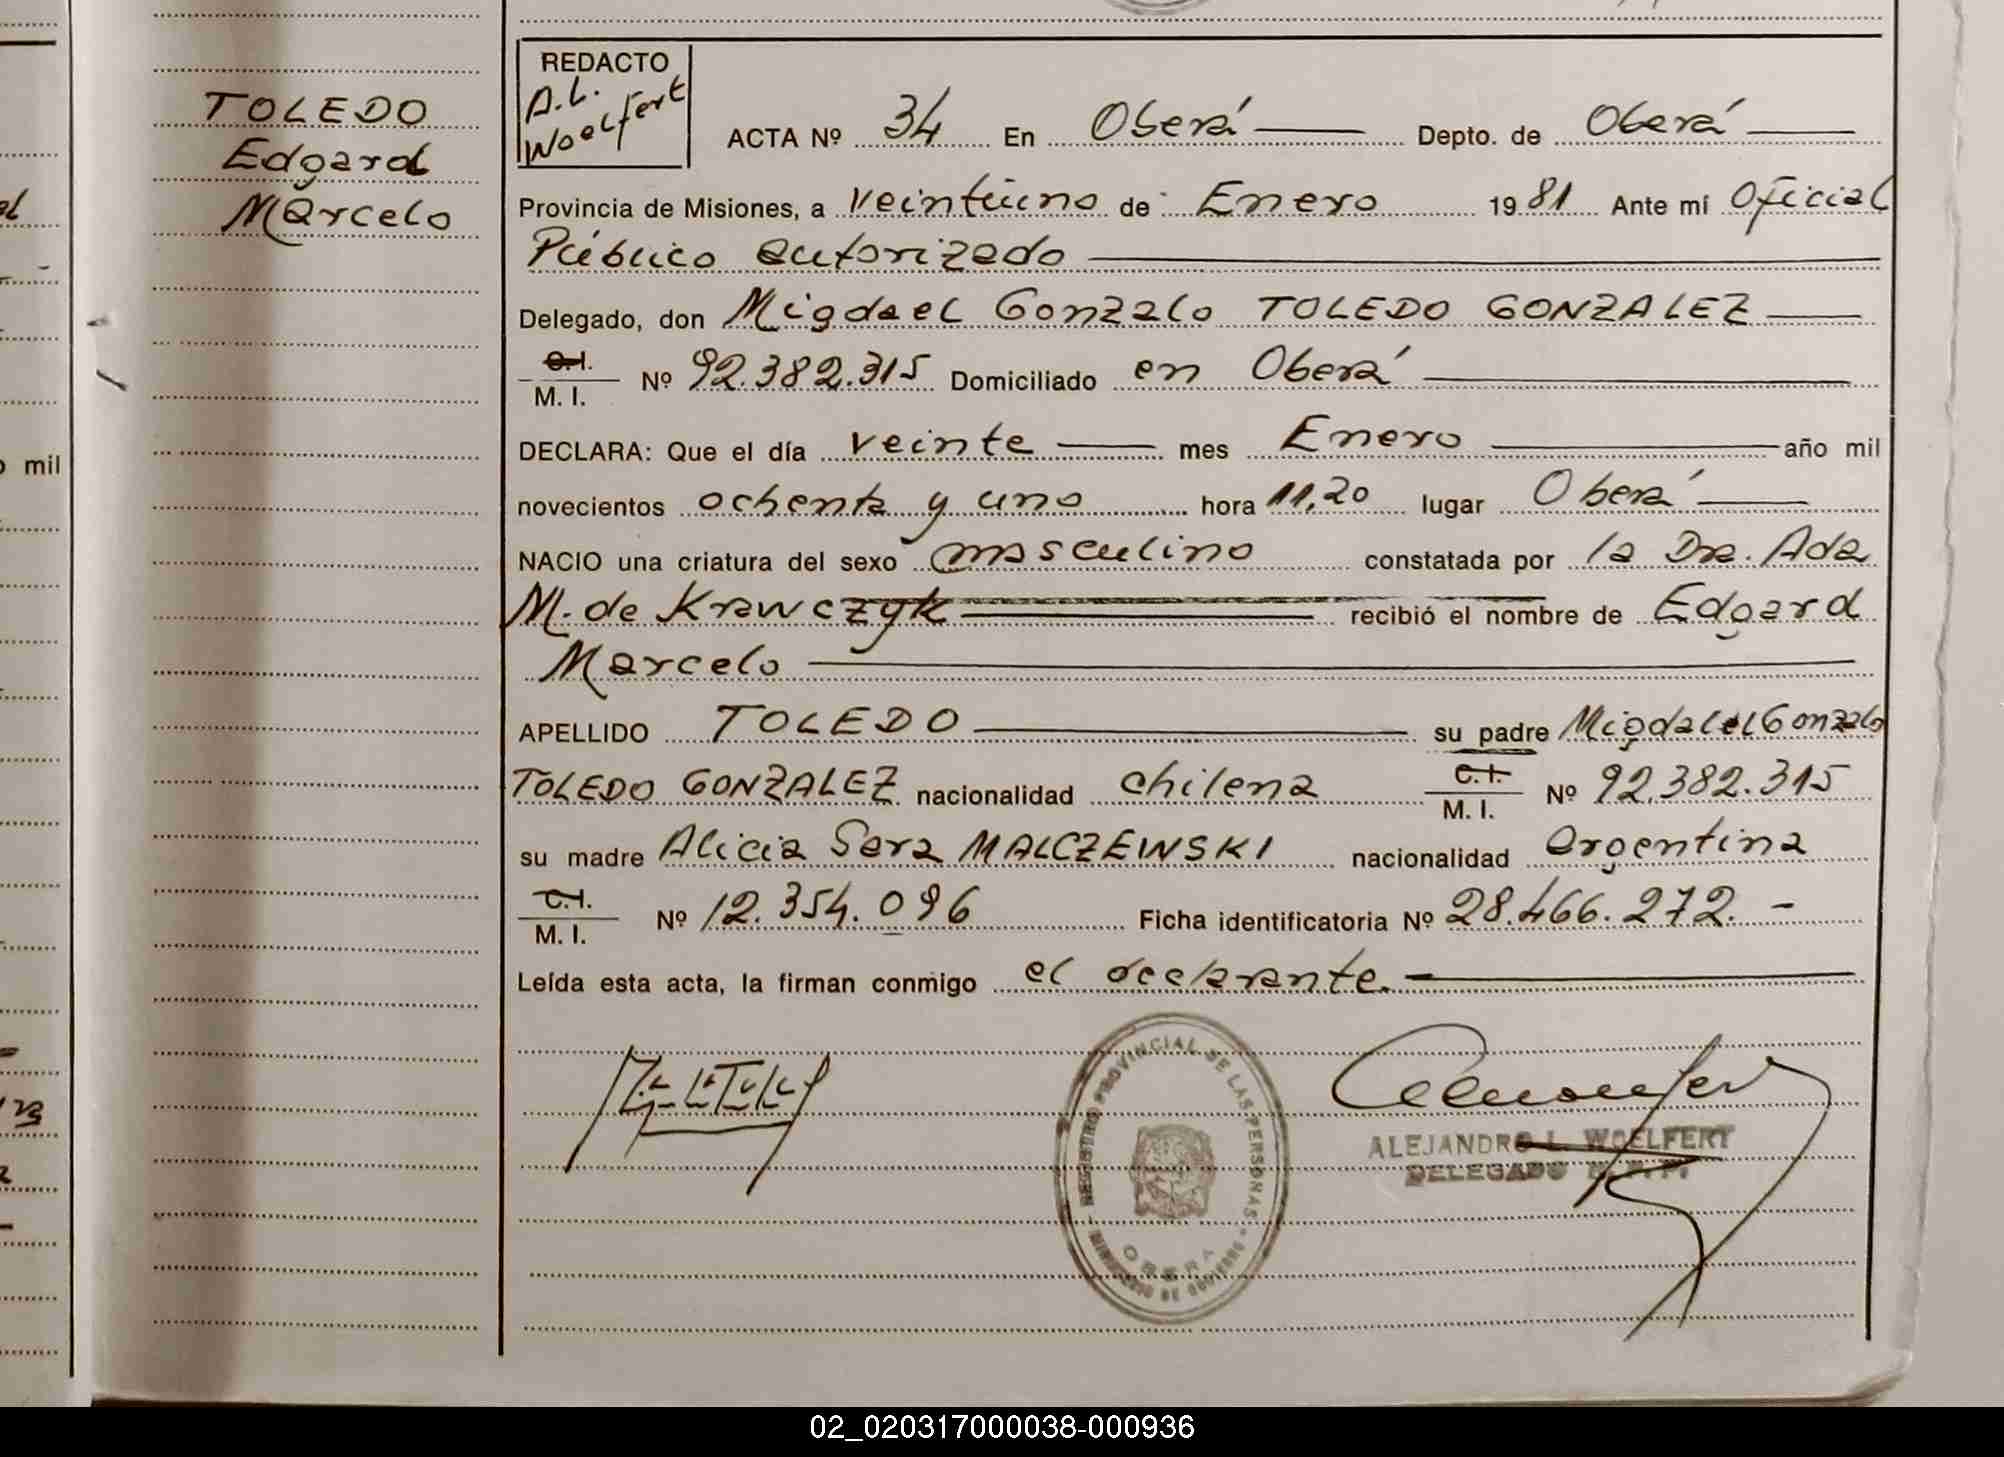 TOLEDO
Edgard
Marcelo
mil
REDACTO
A.L.
Woelfert
ACTA Nº 34 En Oberá Depto. de Oberá
Provincia de Misiones, a veintiuno de Enero 1981 Ante mí Oficial
Público autorizado
Delegado, don Migdael Gonzalo TOLEDO GONZALEZ
C.I.
M. I. Nº 92.382.315 Domiciliado en Oberá
DECLARA: Que el día veinte mes Enero año mil
novecientos ochenta y uno hora 11,20 lugar Oberá
NACIO una criatura del sexo masculino constatada por la Dra. Ada
M. de Krawczyk recibió el nombre de Edgard
Marcelo
APELLIDO TOLEDO su padre Migdael Gonzalo
TOLEDO GONZALEZ nacionalidad chilena C.I. M. I. Nº 92.382.315
su madre Alicia Sara MALCZEWSKI nacionalidad argentina
C.I.
M. I. Nº 12.354.096 Ficha identificatoria Nº 28.466.272.-
Leída esta acta, la firman conmigo el declarante.
REGISTRO PROVINCIAL DE LAS PERSONAS
MINISTERIO DE GOBIERNO
OBERA
ALEJANDRO L. WOELFERT
DELEGADO
02_020317000038-000936